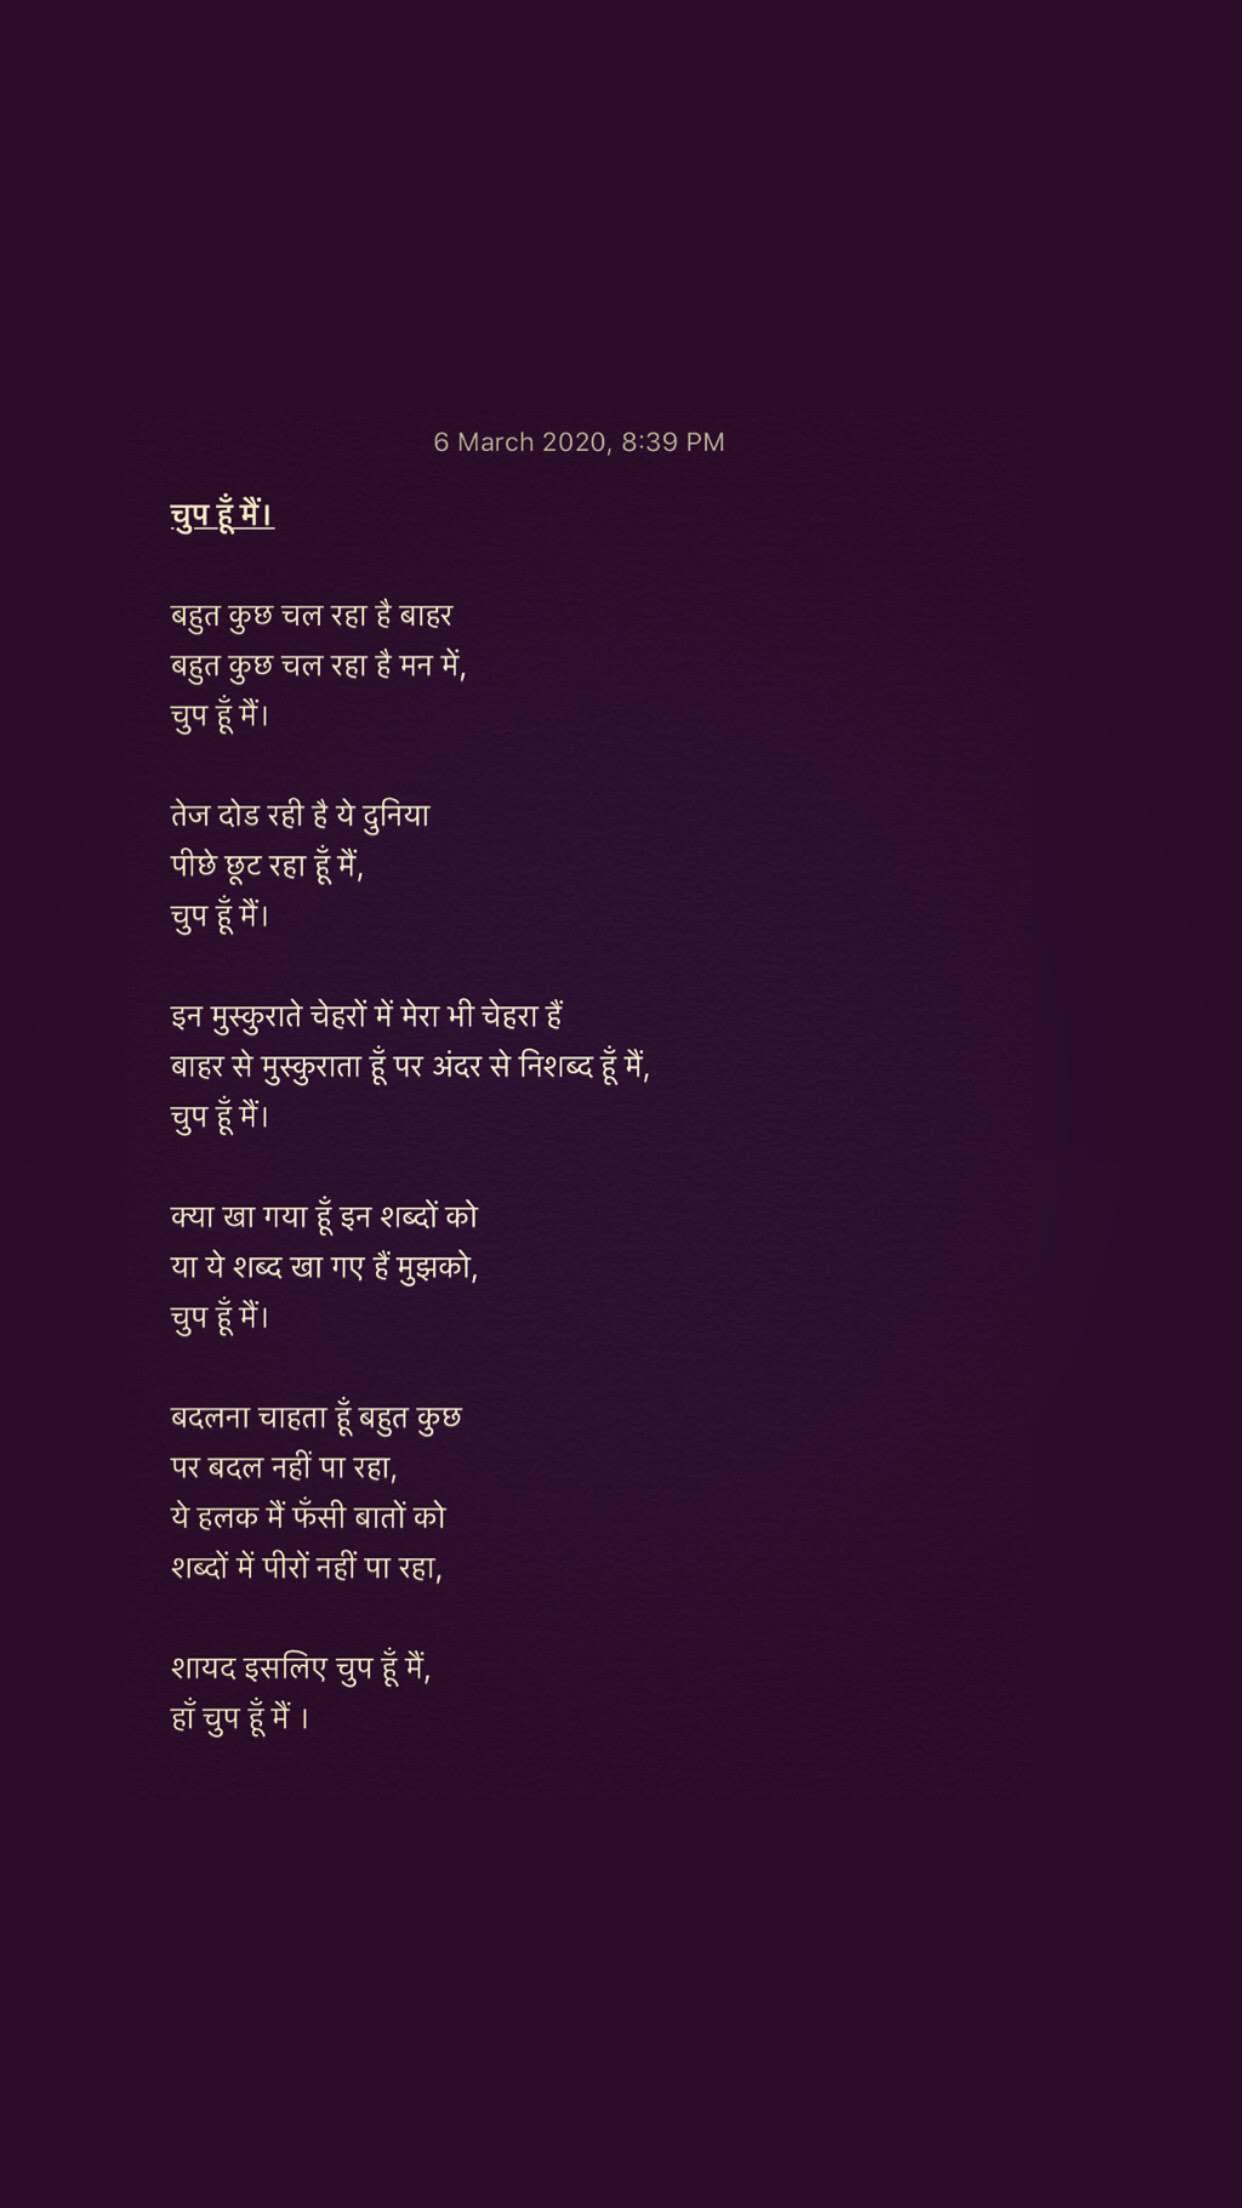 6 March 2020, 8:39 PM
चुप हूँ मैं।
बहुत कुछ चल रहा है बाहर
बहुत कुछ चल रहा है मन में,
चुप हूँ मैं।
तेज दोड रही है ये दुनिया
पीछे छूट रहा हूँ मैं,
चुप हूँ मैं।
इन मुस्कुराते चेहरों में मेरा भी चेहरा हैं
बाहर से मुस्कुराता हूँ पर अंदर से निशब्द हूँ मैं,
चुप हूँ मैं।
क्या खा गया हूँ इन शब्दों को
या ये शब्द खा गए हैं मुझको,
चुप हूँ मैं।
बदलना चाहता हूँ बहुत कुछ
पर बदल नहीं पा रहा,
ये हलक मैं फँसी बातों को
शब्दों में पीरों नहीं पा रहा,
शायद इसलिए चुप हूँ मैं,
हाँ चुप हूँ मैं ।